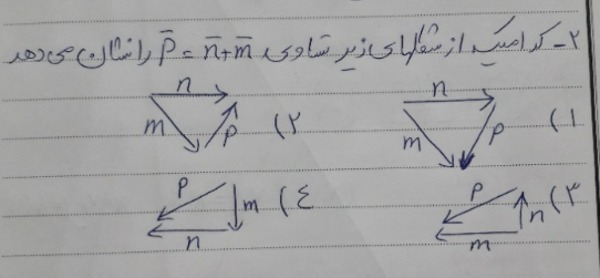 ۲- کدامیک از شکلهای زیر تساوی p̄ = n̄+m̄ را نشان می‌دهد
n m p (۱
n m p (۲
p n m (۳
p m n (٤